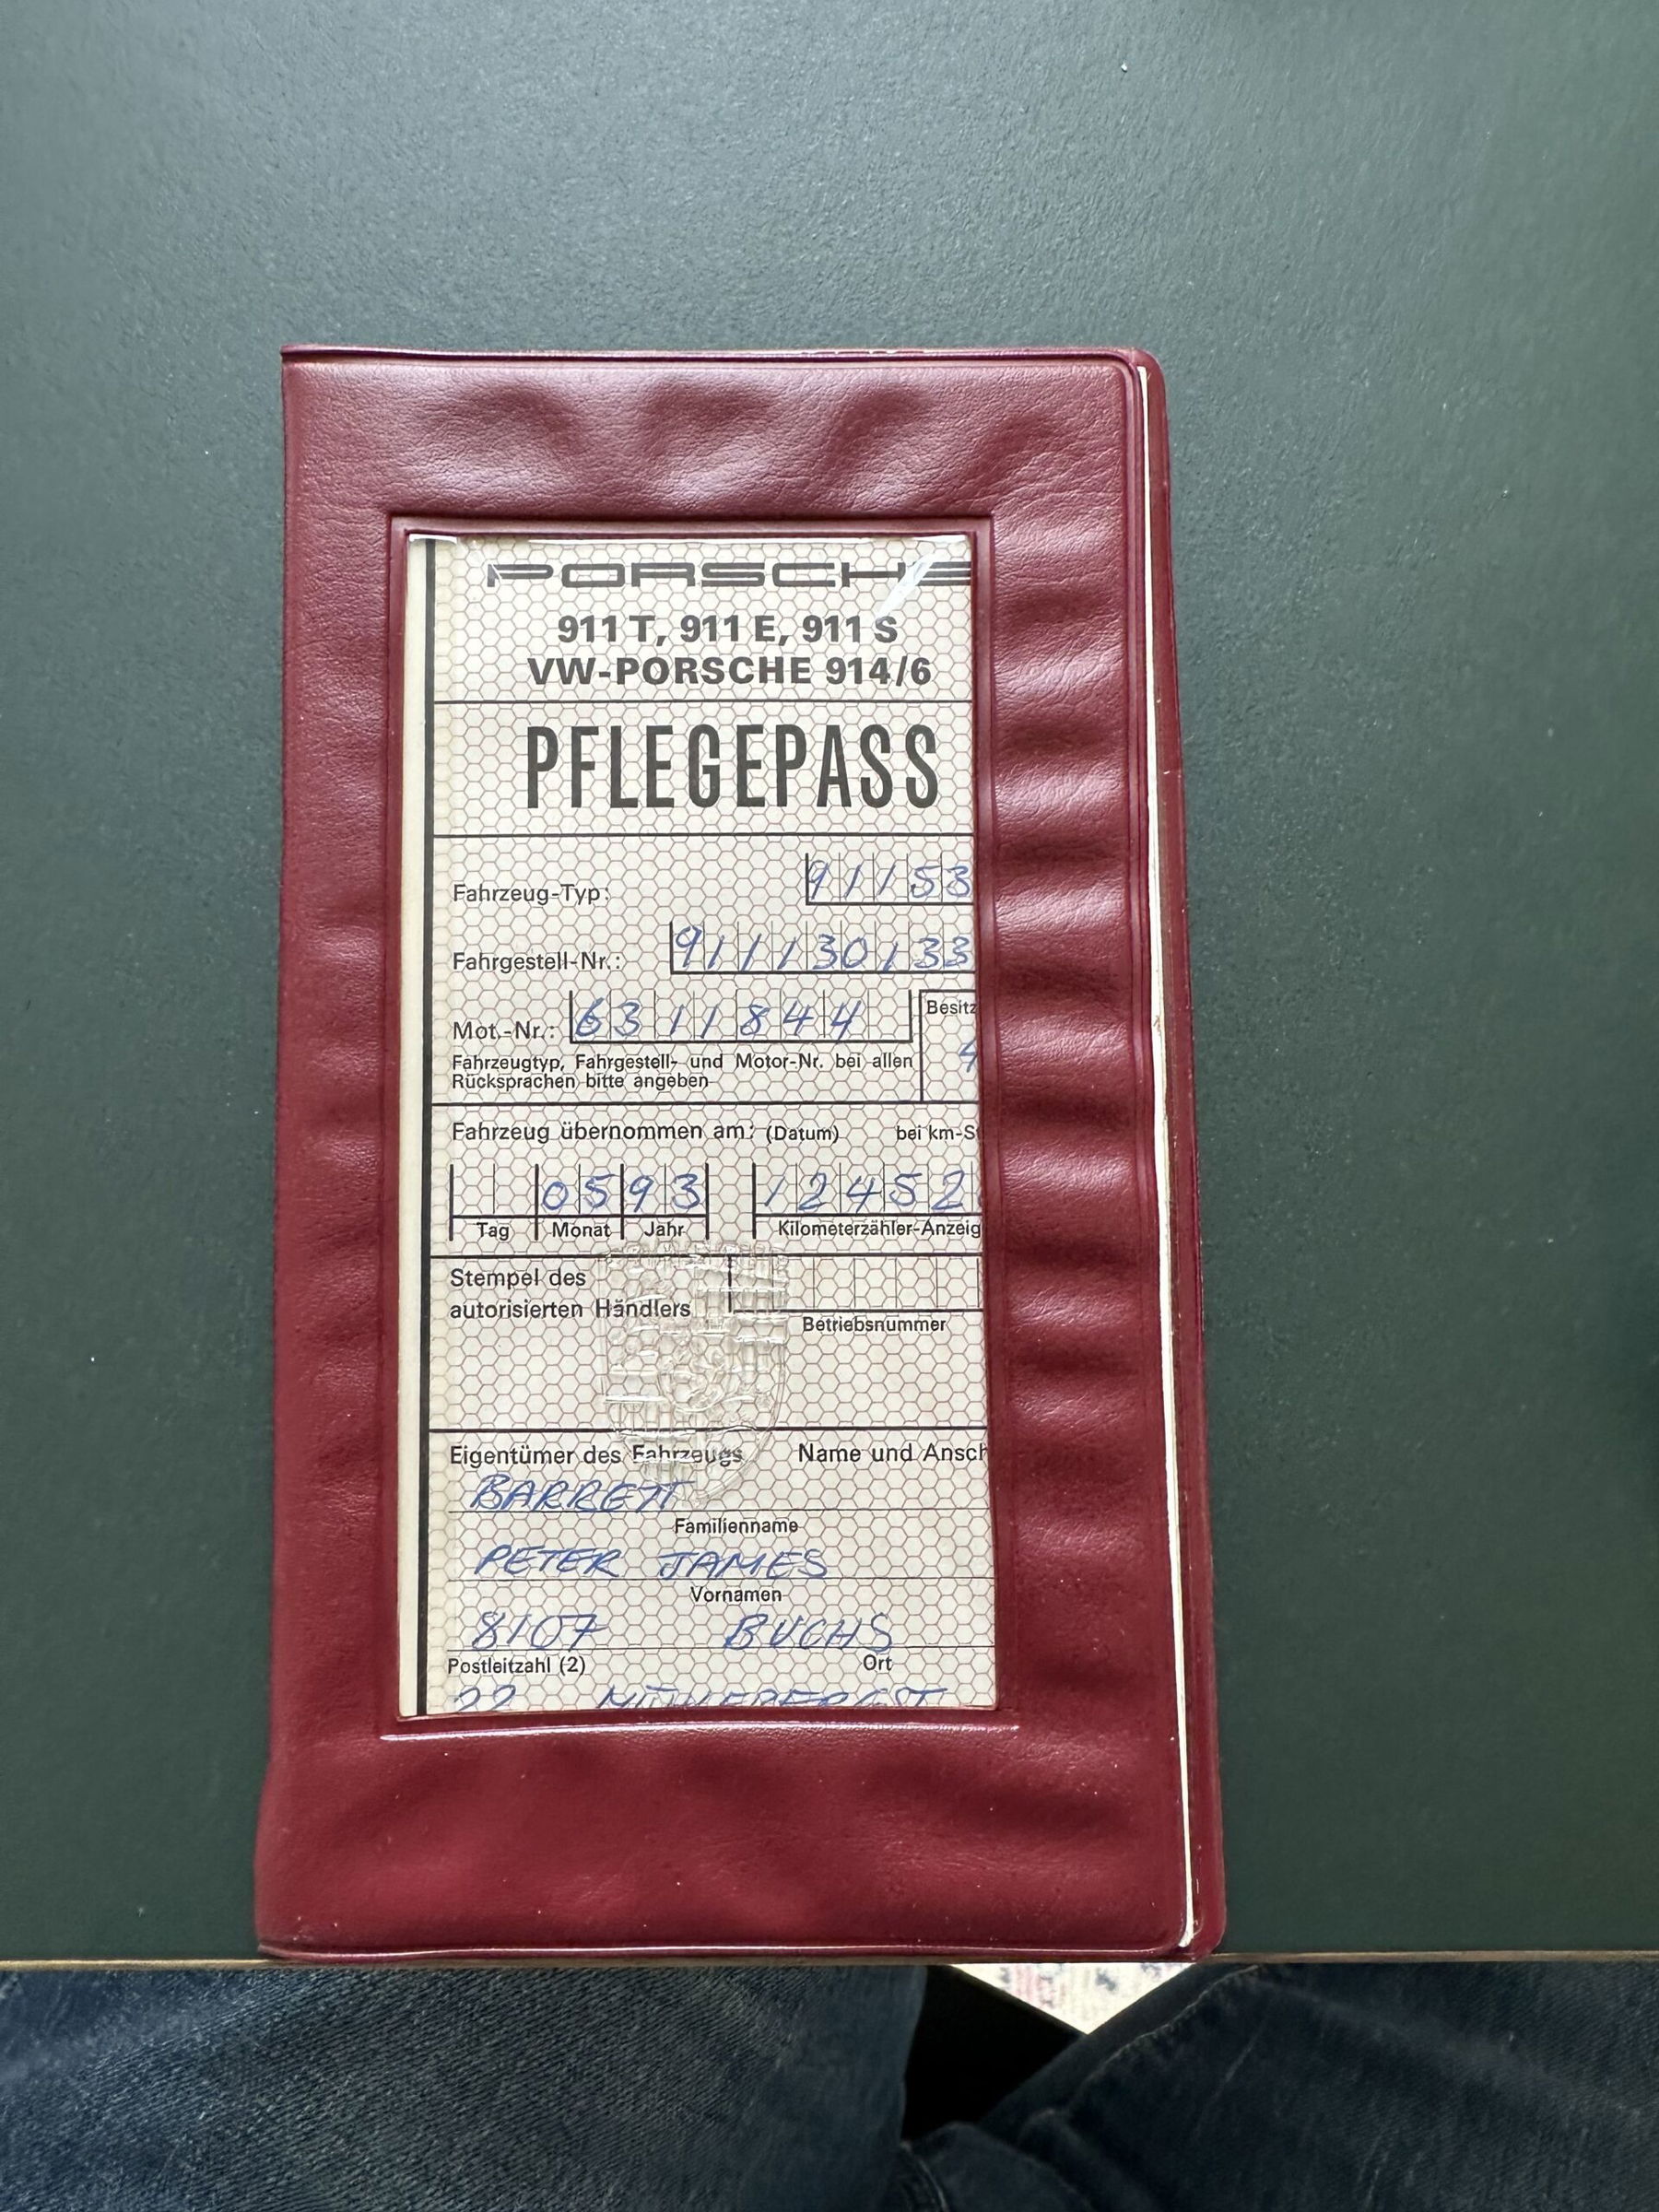 PORSCHE
911 T, 911 E, 911 S
VW-PORSCHE 914/6
PFLEGEPASS
Fahrzeug-Typ: 91153
Fahrgestell-Nr.: 911130133
Mot.-Nr.: 6311844
Besitz
4
Fahrzeugtyp, Fahrgestell- und Motor-Nr. bei allen
Rücksprachen bitte angeben
Fahrzeug übernommen am: (Datum) bei km-St
0593 12452
Tag Monat Jahr Kilometerzähler-Anzeig
Stempel des
autorisierten Händlers
Betriebsnummer
Eigentümer des Fahrzeugs Name und Ansch
BARRETT
Familienname
PETER JAMES
Vornamen
8107 BUCHS
Postleitzahl (2) Ort
22